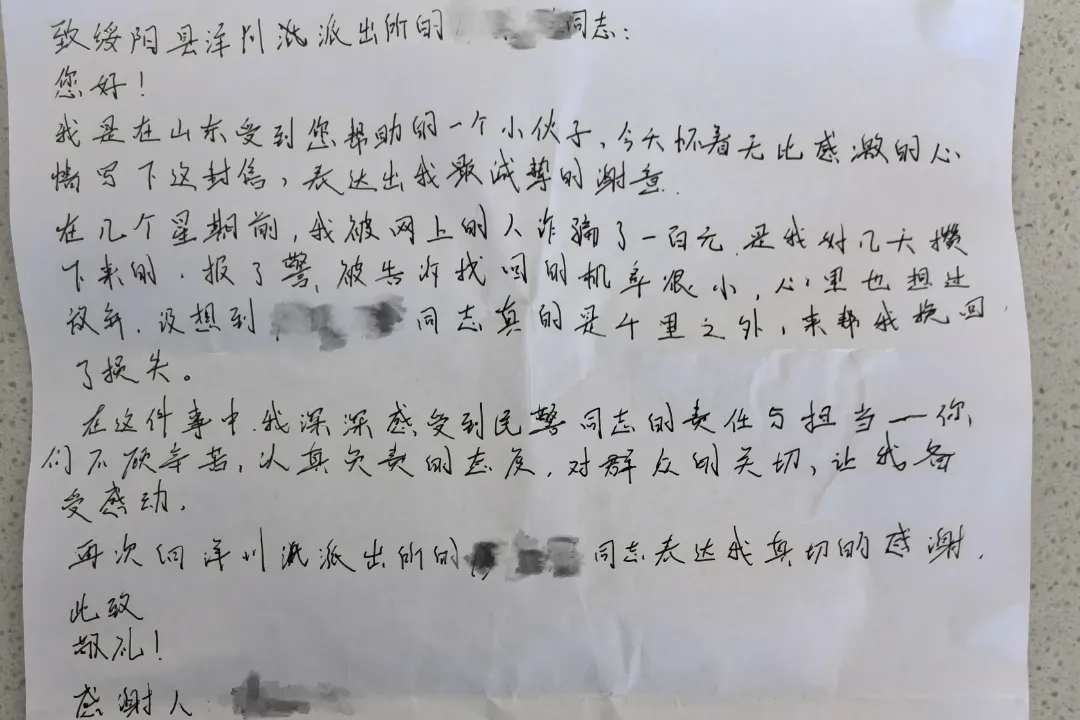 致绥阳县洋川派出所的 同志:
您好!
我是在山东受到您帮助的一个小伙子,今天怀着无比感激的心
情写下这封信,表达出我最诚挚的谢意.
在几个星期前,我被网上的人诈骗了一百元.是我好几天攒
下来的,报了警,被告诉找回的机率很小,心里也想过
放弃.没想到 同志真的是千里之外,来帮我挽回
了损失。
在这件事中.我深深感受到民警同志的责任与担当一你
们不顾辛苦,认真负责的态度,对群众的关切,让我备
受感动.
再次向洋川派出所的 同志表达我真切的感谢.
此致
敬礼!
感谢人